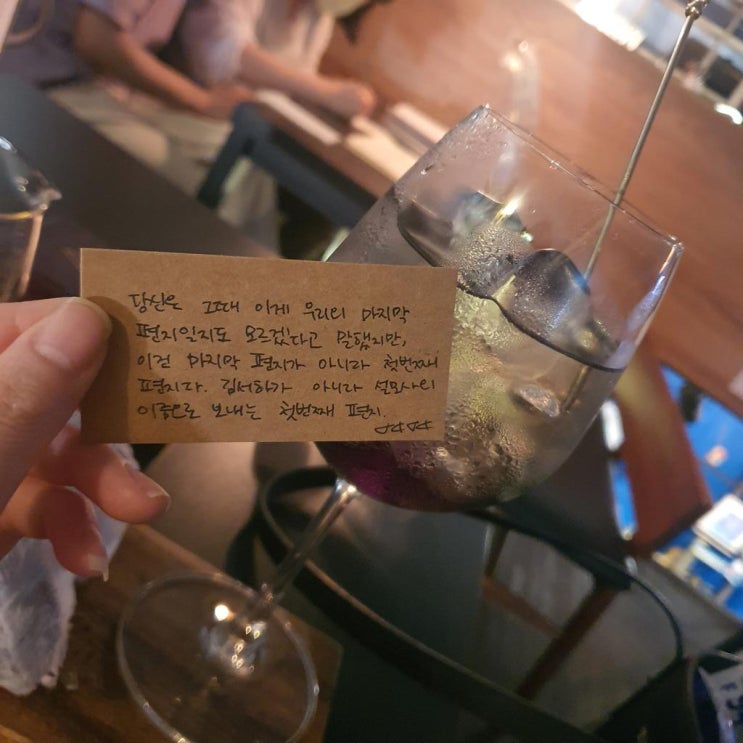 당신은 그때 이게 우리의 마지막
편지일지도 모르겠다고 말했지만,
이건 마지막 편지가 아니라 첫번째
편지다. 김서하가 아니라 설모사의
이름으로 보내는 첫번째 편지.